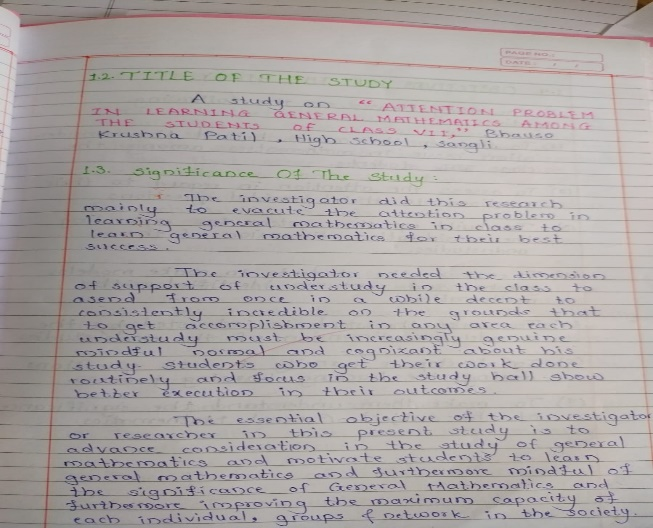 PAGE NO.:
DATE: / /
1.2. TITLE OF THE STUDY
A study on "ATTENTION PROBLEM
IN LEARNING GENERAL MATHEMATICS AMONG
THE STUDENTS OF CLASS VII," Bhauso
Krushna Patil, High School, Sangli.
1.3. Significance Of The Study:
The investigator did this research
mainly to evacute the attention problem in
learning general mathematics in class to
learn general mathematics for their best
success.
The investigator needed the dimension
of support of understudy in the class to
asend from once in a while decent to
consistently incredible on the grounds that
to get accomplishment in any area each
understudy must be increasingly genuine
mindful normal and cognizant about his
study. students who get their work done
routinely and focus in the study hall show
better execution in their outcomes.
The essential objective of the investigator
or researcher in this present study is to
advance consideration in the study of general
mathematics and motivate students to learn
general mathematics and furthermore mindful of
the significance of General Mathematics and
furthermore improving the maximum capacity of
each individual, groups & network in the society.